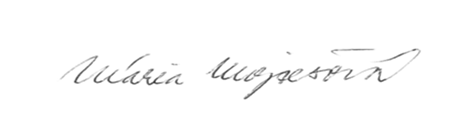 Mária Mojžešová